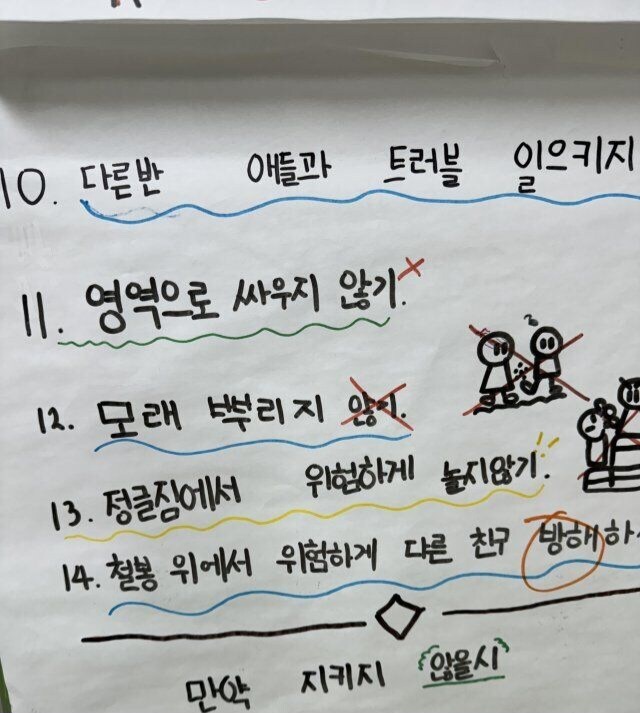 10. 다른반 애들과 트러블 일으키지
11. 영역으로 싸우지 않기.
12. 모래 뿌리지 않기.
13. 정글짐에서 위험하게 놀지않기.
14. 철봉 위에서 위험하게 다른 친구 방해하
만약 지키지 않을시